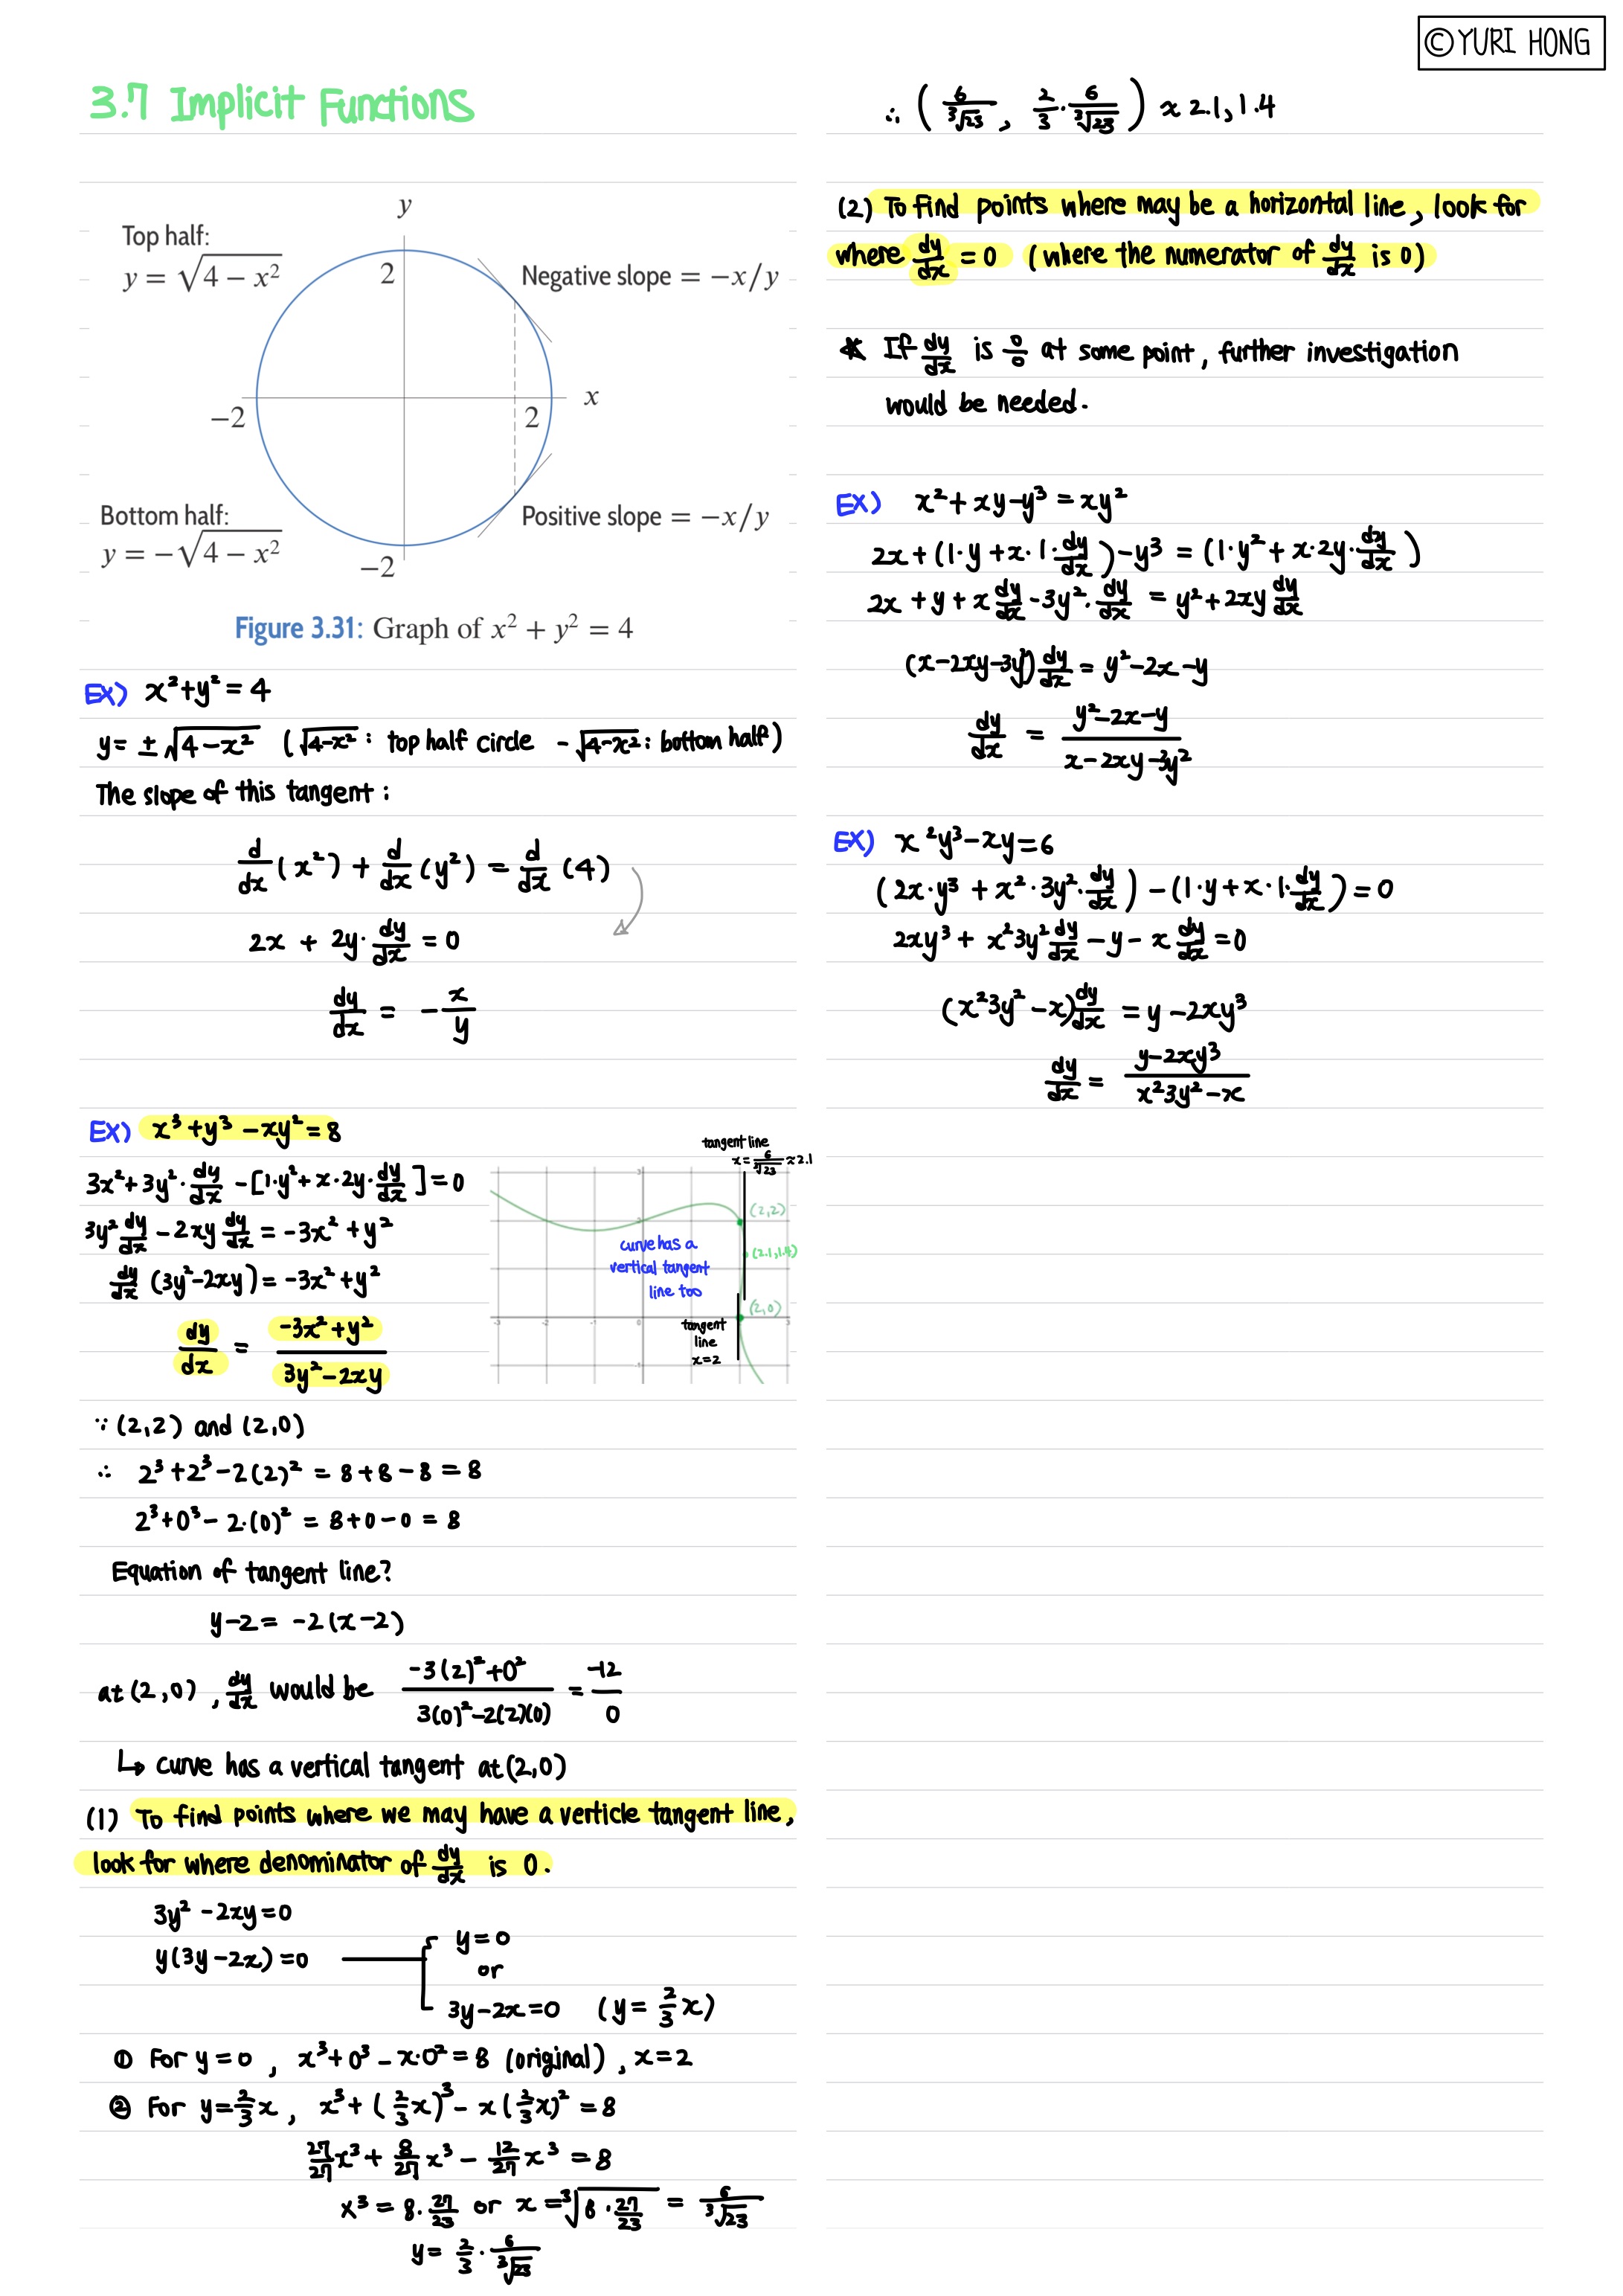 ©YURI HONG
3.7 Implicit Functions
Top half:
y = √(4 − x²)
y
2
Negative slope = −x/y
−2
2
x
Bottom half:
y = −√(4 − x²)
−2
Positive slope = −x/y
Figure 3.31: Graph of x² + y² = 4
EX) x²+y² = 4
y = ± √(4−x²) (√(4−x²) : top half circle −√(4−x²) : bottom half)
The slope of this tangent :
d/dx (x²) + d/dx (y²) = d/dx (4)
2x + 2y· dy/dx = 0
dy/dx = − x/y
EX) x³ + y³ − xy² = 8
3x² + 3y² · dy/dx − [1·y² + x·2y· dy/dx] = 0
3y² dy/dx − 2xy dy/dx = −3x² + y²
dy/dx (3y²−2xy) = −3x² + y²
dy/dx = (−3x²+y²)/(3y²−2xy)
tangent line
x = 6/∛23 ≈ 2.1
(2,2)
curve has a
(2.1,1.4)
vertical tangent
line too
(2,0)
-3 -2 -1 0 3
tangent
line
x=2
∵ (2,2) and (2,0)
∴ 2³ + 2³ − 2(2)² = 8+8−8 = 8
2³+0³ − 2·(0)² = 8+0−0 = 8
Equation of tangent line?
y−2 = −2(x−2)
at (2,0) , dy/dx would be (−3(2)²+0²)/(3(0)²−2(2)(0)) = −12/0
↳ curve has a vertical tangent at (2,0)
(1) To find points where we may have a verticle tangent line,
look for where denominator of dy/dx is 0.
3y² − 2xy = 0
y(3y−2x) = 0
y = 0
or
3y−2x=0 (y = 2/3 x)
① For y=0 , x³+0³ − x·0² = 8 (original) , x=2
② For y=2/3 x , x³ + (2/3 x)³ − x(2/3 x)² = 8
27/27 x³ + 8/27 x³ − 12/27 x³ = 8
x³ = 8 · 27/23 or x = ∛(8 · 27/23) = 6/∛23
y = 2/3 · 6/∛23
∴ ( 6/∛23 , 2/3 · 6/∛23 ) ≈ 2.1, 1.4
(2) To find points where may be a horizontal line, look for
where dy/dx = 0 (where the numerator of dy/dx is 0)
* If dy/dx is 0/0 at some point, further investigation
would be needed.
EX) x² + xy − y³ = xy²
2x + (1·y + x·1· dy/dx) − y³ = (1·y² + x·2y· dy/dx)
2x + y + x dy/dx − 3y² · dy/dx = y² + 2xy dy/dx
(x−2xy−3y²) dy/dx = y²−2x−y
dy/dx = (y²−2x−y)/(x−2xy−3y²)
EX) x²y³ − xy = 6
(2x·y³ + x²·3y²· dy/dx) − (1·y + x·1· dy/dx) = 0
2xy³ + x²3y² dy/dx − y − x dy/dx = 0
(x²3y² − x) dy/dx = y − 2xy³
dy/dx = (y−2xy³)/(x²3y²−x)